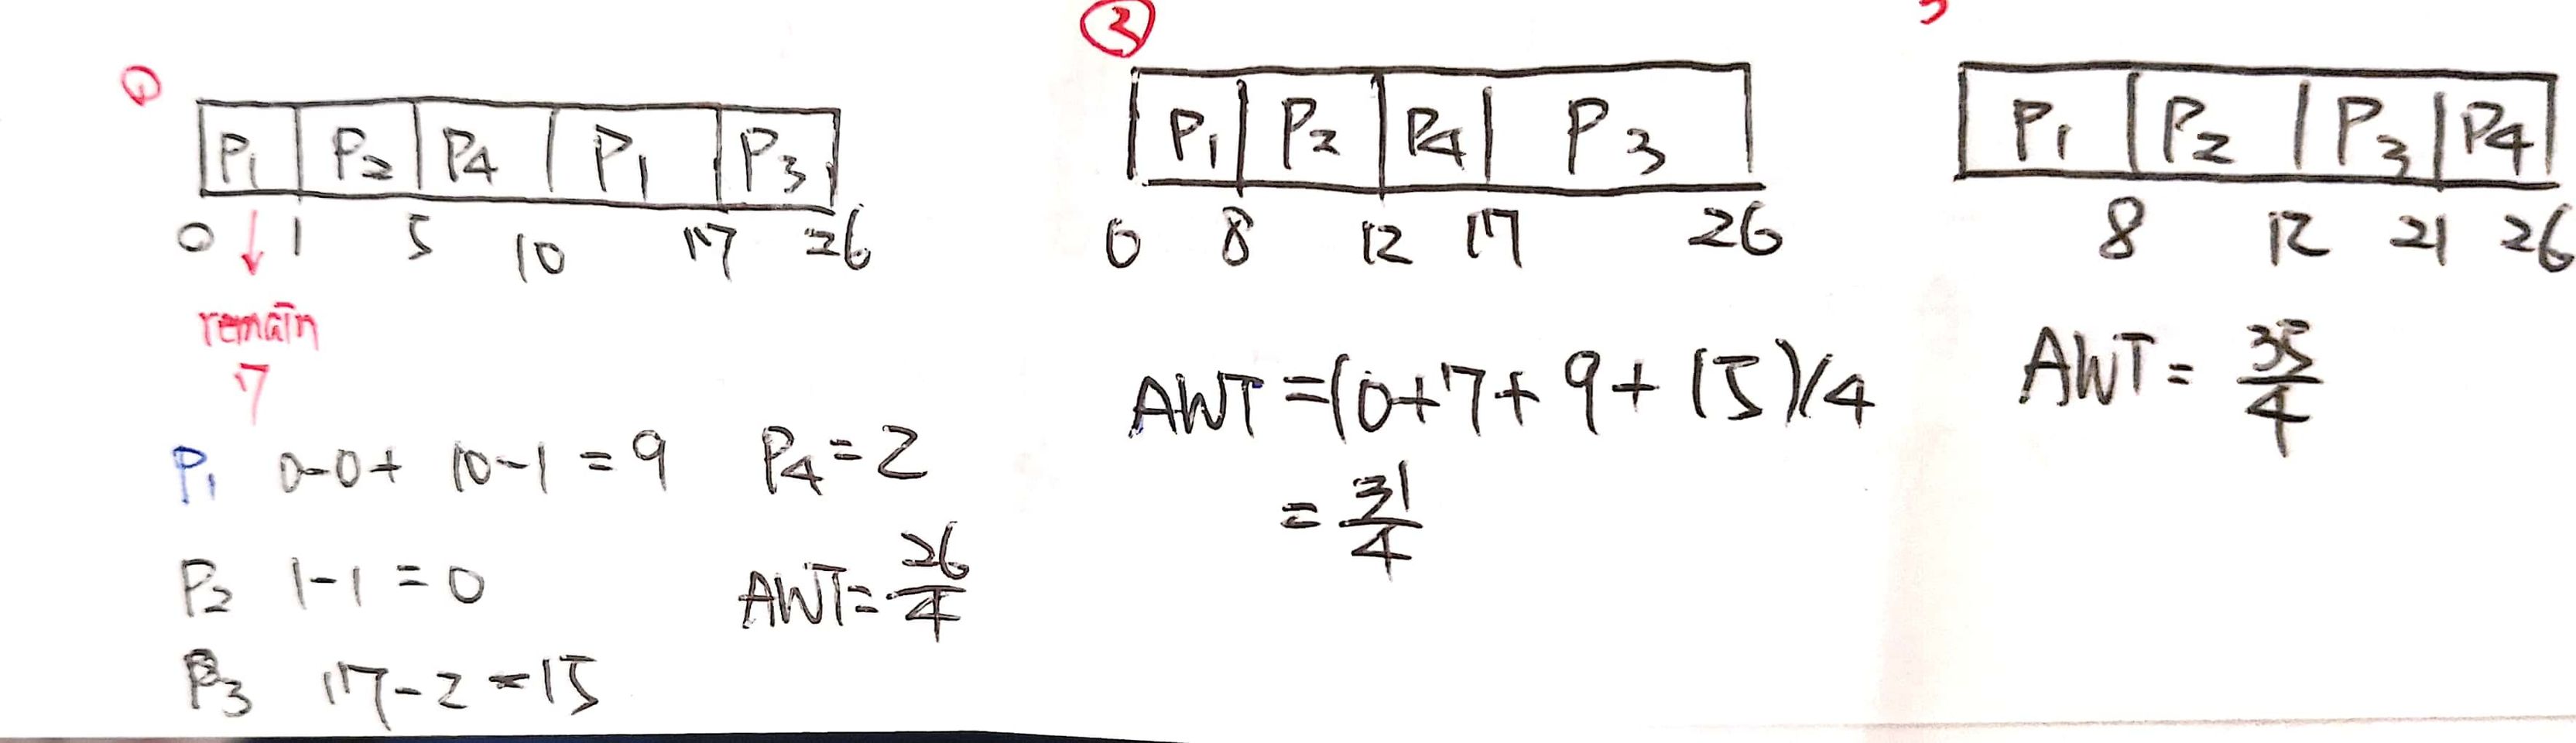 ①
P1 P2 P4 P1 P3
0 1 5 10 17 26
remain
7
P1 0-0+ 10-1 = 9
P2 1-1 = 0
P3 17-2 = 15
P4 = 2
AWT = 26/4
②
P1 P2 P4 P3
0 8 12 17 26
AWT = (0+7+9+15)/4
= 31/4
P1 P2 P3 P4
8 12 21 26
AWT = 35/4